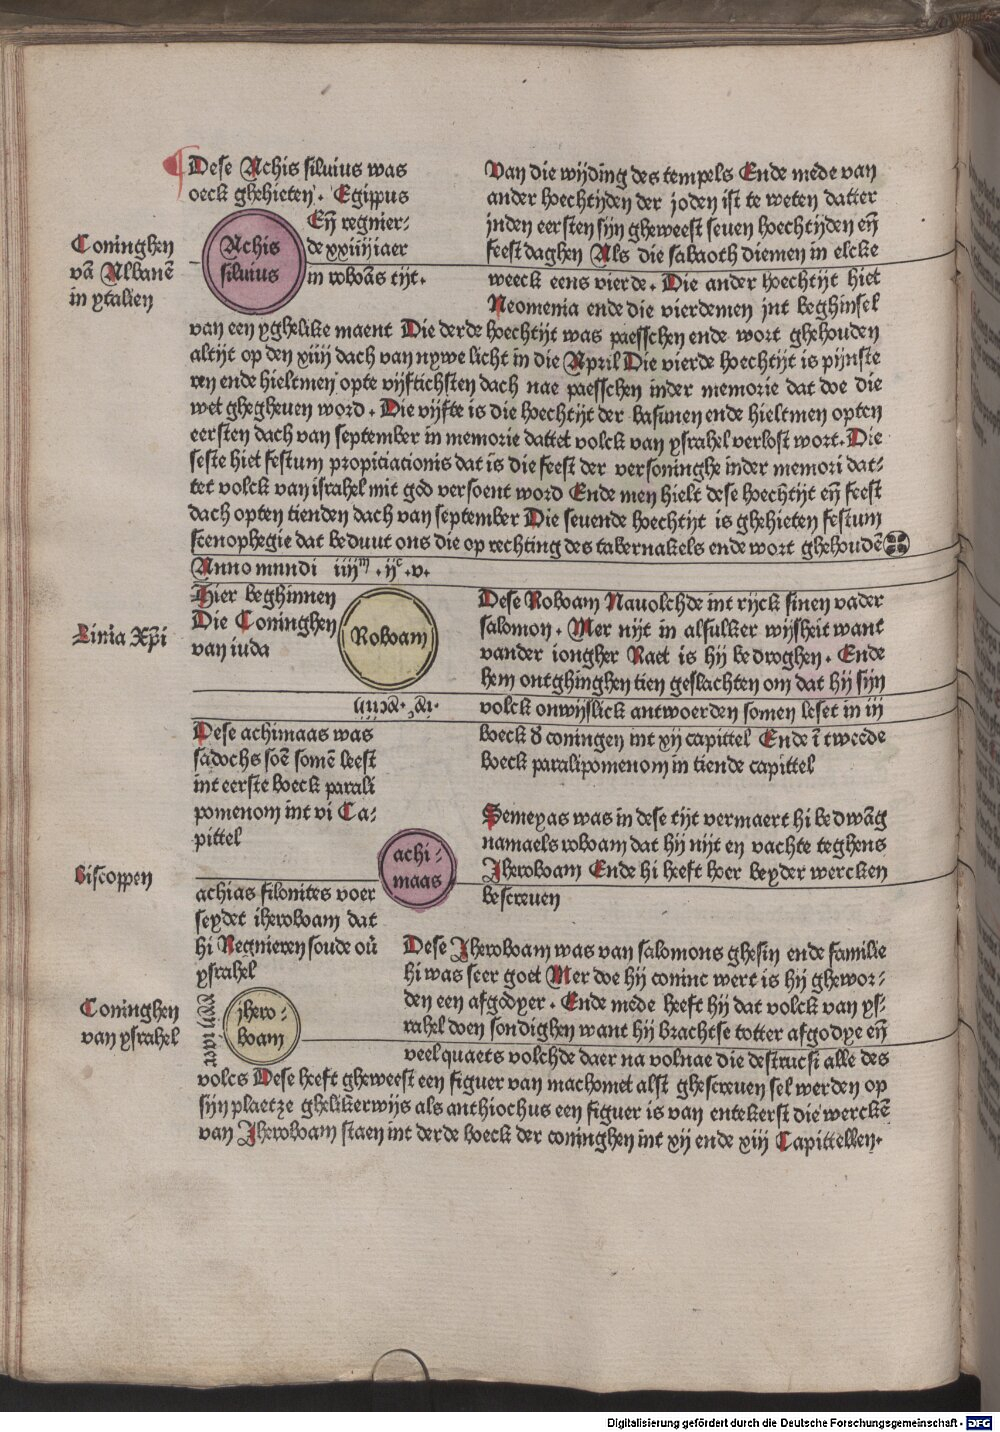 Dese Achis siluius was
oeck ghehieten. Egippus
Eñ regnier-
de xxiiij iaer
in roboãs tijt.
Coninghen
vã Albanẽ
in ytalien
Achis
siluius
Van die wijding des tempels Ende mede van
ander hoechtijden der joden ist te weten datter
jnden eersten sijn gheweest seuen hoechtijden eñ
feest daghen Als die sabaoth diemen in elcke
weeck eens vierde. Die ander hoechtijt hiet
Neomenia ende die vierdemen jnt beghinsel
van een yghelike maent Die derde hoechtijt was paesschen ende wort ghehouden
altijt op den xiiij dach van nywe licht in die April Die vierde hoechtijt is pijnste
ren ende hieltmen opte vijftichsten dach nae paesschen inder memorie dat doe die
wet ghegheuen word. Die vijfte is die hoechtijt der basunen ende hieltmen opten
eersten dach van september in memorie dattet volck van ysrahel verlost wort. Die
seste hiet festum propiciacionis dat is die feest der versoninghe inder memori dat-
tet volck van israhel mit god versoent word Ende men hielt dese hoechtijt eñ feest
dach opten tienden dach van september Die seuende hoechtijt is ghehieten festum
scenophegie dat beduut ons die op rechting des tabernakels ende wort ghehoudẽ
Anno mundi iiijᵐ. ijᶜ. v.
Hier beghinnen
Die Coninghen
van iuda
Linia Xp̃i
Roboam
Dese Roboam Nauolchde int rijck sinen vader
salomon. Mer nijt in alsulker wijsheit want
vander iongher Raet is hij bedroghen. Ende
hem ontghinghen tien geslachten om dat hij sijn
volck onwijslick antwoerden somen leset in iij
boeck d coningen int xij capittel Ende ĩ tweede
boeck paralipomenom in tiende capittel
Dese achimaas was
sadochs soẽ somẽ leest
int eerste boeck parali
pomenom int vi Ca-
pittel
Biscoppen
achi-
maas
Semeyas was in dese tijt vermaert hi bedwãg
namaels roboam dat hij nijt en vachte teghens
Jheroboam Ende hi heeft hoer beyder wercken
bescreuen
achias silonites voer
seydet iheroboam dat
hi Regnieren soude ou
ysrahel
Coninghen
van ysrahel
jhero-
boam
Dese Jheroboam was van salomons ghesin ende familie
hi was seer goet Mer doe hij coninc wert is hij ghewor-
den een afgodyer. Ende mede heeft hij dat volck van ys-
rahel doen sondighen want hij brachtse totter afgodye eñ
veel quaets volchde daer na volnae die destrucsi alle des
volcs Dese heeft gheweest een figuer van machomet alst ghescreuen sel werden op
sijn plaetze ghelikerwijs als anthiochus een figuer is van entekerst die werckẽ
van Jheroboam staen int derde boeck der coninghen int xij ende xiij Capittellen.
Digitalisierung gefördert durch die Deutsche Forschungsgemeinschaft - DFG